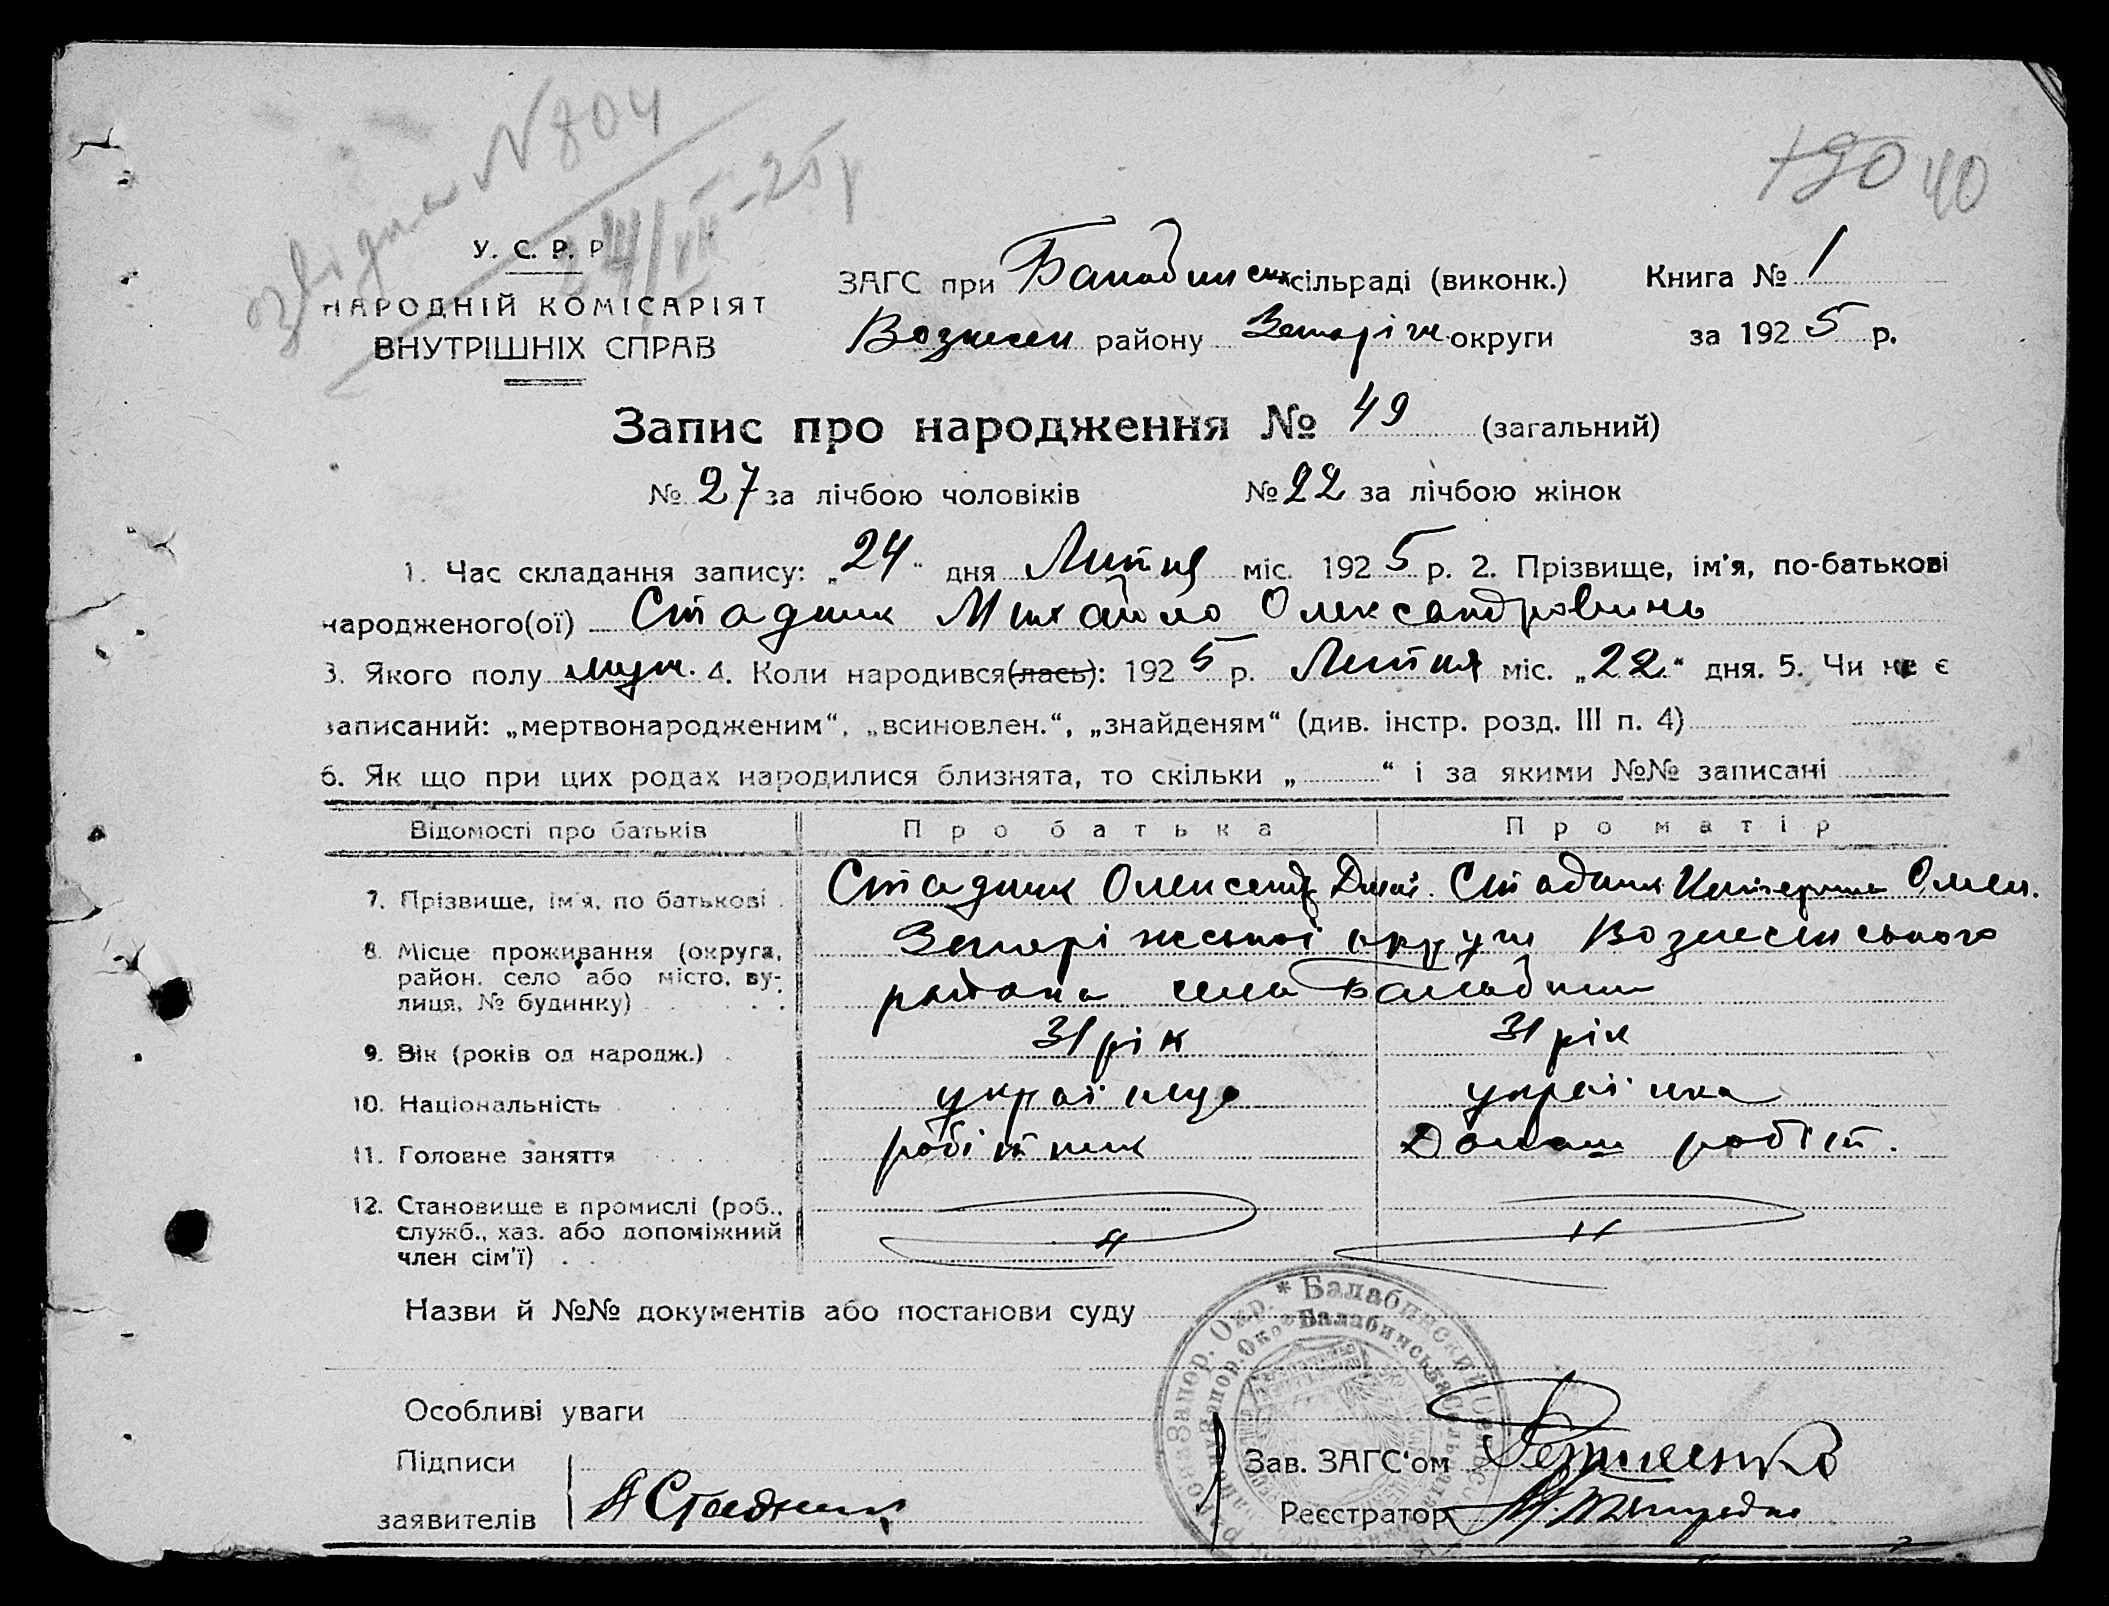 № 804
24/VII-25р
190 40
У. С. Р. Р.
НАРОДНІЙ КОМІСАРІЯТ
ВНУТРІШНІХ СПРАВ
ЗАГС при Балабинськ сільраді (виконк.) Книга № 1
Вознесен району Запоріж. округи за 1925 р.
Запис про народження № 49 (загальний)
№ 27 за лічбою чоловіків № 22 за лічбою жінок
1. Час складання запису: „24" дня Липня міс. 1925 р. 2. Прізвище, ім'я, по-батькові
народженого(ої) Стадник Михайло Олександровичь
3. Якого полу муж. 4. Коли народився(лась): 1925 р. Липня міс. „22" дня. 5. Чи не є
записаний: „мертвонародженим", „всиновлен.", „знайденям" (див. інстр. розд. III п. 4)
6. Як що при цих родах народилися близнята, то скільки „ " і за якими №№ записані
Відомості про батьків Про батька Про матір
7. Прізвище, ім'я, по батькові Стадник Олександ Стадник Катерина Олек.
8. Місце проживання (округа, Запоріжської округи Вознесенського
район, село або місто, ву- района села Балабине
лиця, № будинку)
9. Вік (років од народж.) 31 рік 31 рік
10. Національність українць українка
11. Головне заняття робітник Домаш робіт.
12. Становище в промислі (роб.,
служб., хаз. або допоміжний
член сім'ї)
Назви й №№ документів або постанови суду
Запор. Окр. * Балабинский Сельсовет
Запор. Ок. Балабинська
Особливі уваги
Підписи Зав. ЗАГС'ом
заявителів А Стадник Реєстратор